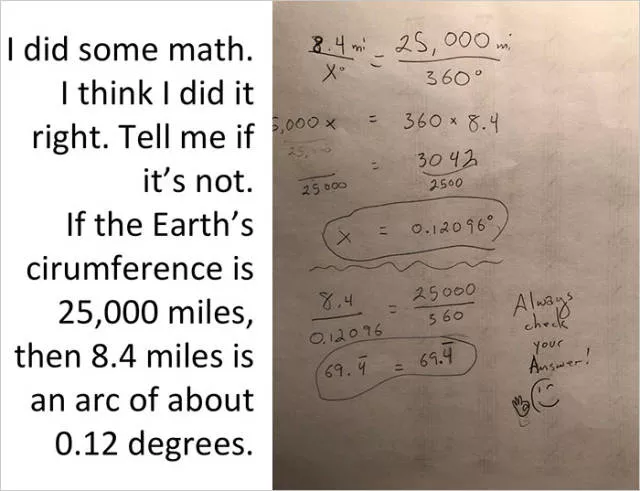 I did some math.
I think I did it
right. Tell me if
it's not.
If the Earth's
cirumference is
25,000 miles,
then 8.4 miles is
an arc of about
0.12 degrees.
8.4 mi = 25,000 mi
X° 360°
5,000 x = 360 × 8.4
25,000
= 3042
25000 2500
X = 0.12096°
8.4 = 25000
0.12096 360
69.4̄ = 69.4̄
Always
check
your
Answer!